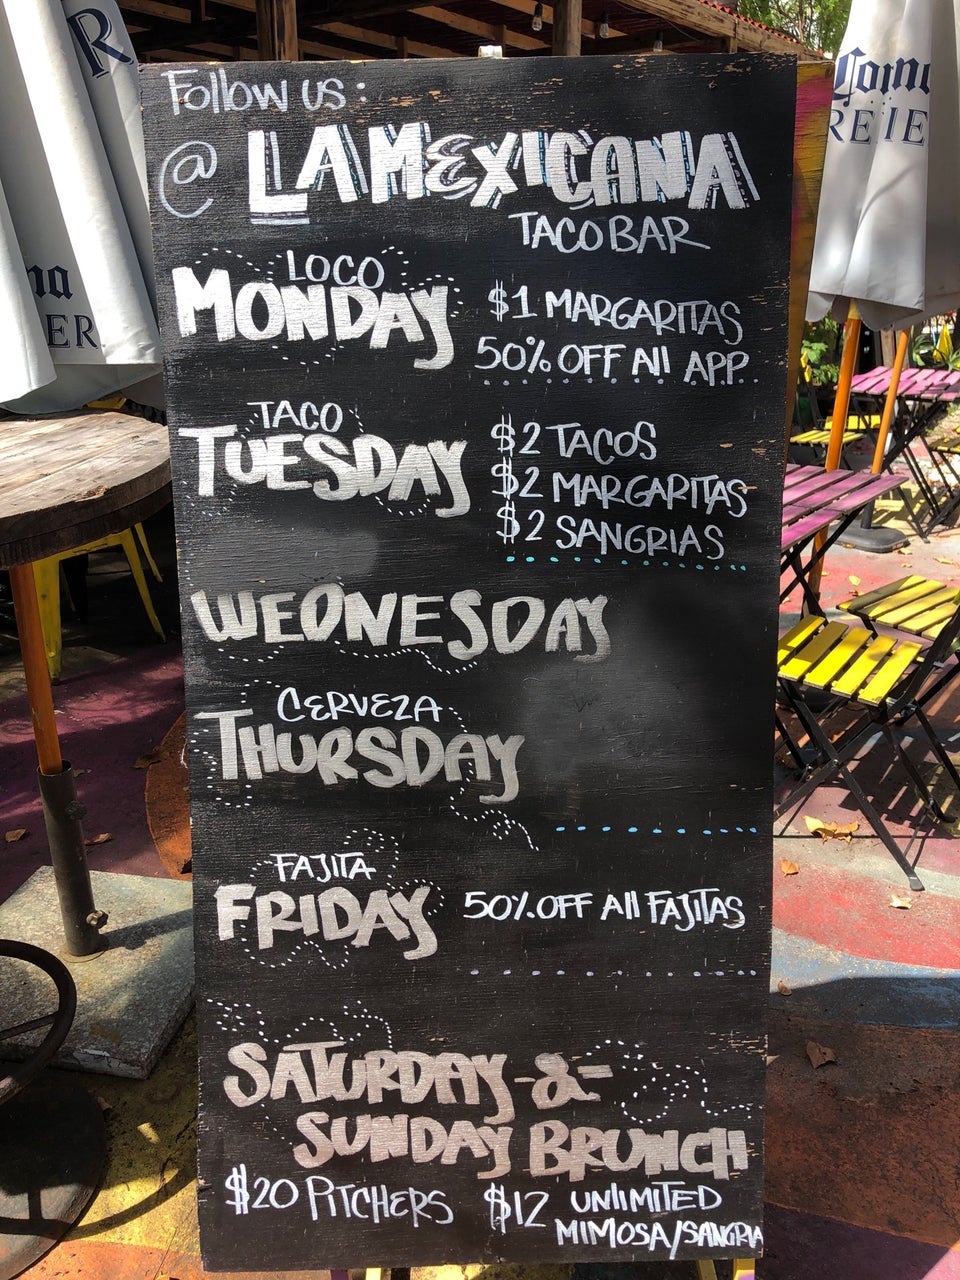 Follow us:
@ LAMEXICANA
TACO BAR
LOCO
MONDAY
$1 MARGARITAS
50% OFF All APP.
TACO
TUESDAY
$2 TACOS
$2 MARGARITAS
$2 SANGRIAS
WEDNESDAY
CERVEZA
THURSDAY
FAJITA
FRIDAY
50% OFF All FAJITAS
SATURDAY -&-
SUNDAY BRUNCH
$20 PITCHERS
$12 UNLIMITED
MIMOSA/SANGRIA